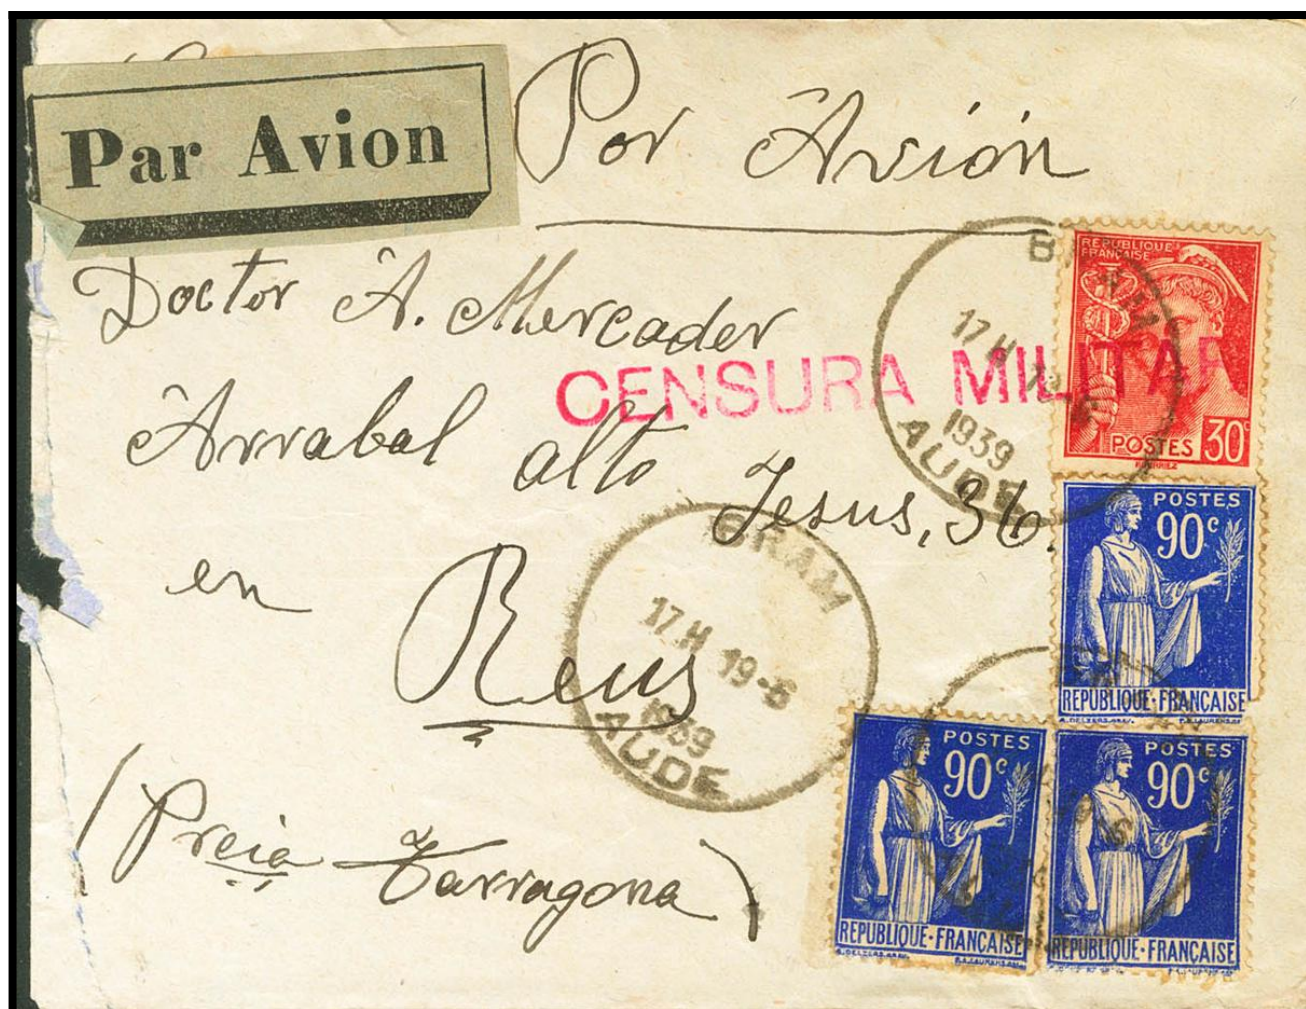 Par Avion
Por Avión
Doctor A. Mercader
CENSURA MILITAR
Arrabal alto
Jesus, 36.
en
Reus
(Preia Tarragona)
BRAM
17 H
1939
AUDE
BRAM
17 H 19-6
1939
AUDE
REPUBLIQUE
FRANÇAISE
POSTES 30c
POSTES
90c
REPUBLIQUE·FRANÇAISE
POSTES
90c
REPUBLIQUE·FRANÇAISE
POSTES
90c
REPUBLIQUE·FRANÇAISE